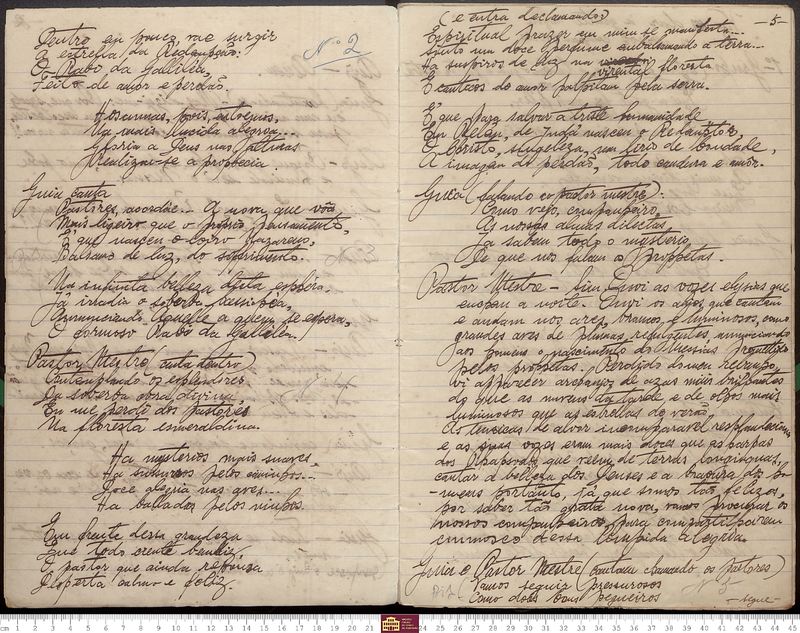 Dentro em pouco vae surgir
A estrella da Redempção:
O Rabo da Gallilia,
Feito de amor e perdão.
Nº 2
Hosannas, pois, entoemos,
Na mais lucida alegria...
Gloria a Deus nas alturas
Realizou-se a prophecia
Guia canta
Pastores, acordáe... A nova que vôa
Mais ligeiro que o proprio pensamento,
É que nasceu o loiro Nazareno,
Balsamo de luz, do soffrimento.
Na infinita belleza desta esphera,
Já irradia a soberba
Annunciando Aquelle a quem se espera,
O formoso Rabo da Gallilea!
Pastor Mestre (canta dentro)
Contemplando os explendores
Da soberba obra divina,
Eu me perdi dos pastores
Na floresta esmeraldina.
Ha mysterios mais suaves
Ha sussurros pelos caminhos...
Doce alegria nas aves...
Ha ballados pelos ninhos.
Em frente dessa grandeza
Que todo crente bemdiz,
O pastor que ainda repouza
Desperta calmo e feliz.
- 5 -
(e entra declamando)
Espiritual prazer em mim se manifesta...
Sinto um doce perfume embalsamando a terra...
Ha suspiros de luz na virental floresta
E canticos de amor palpitam pela serra.
É que para salvar a triste humanidade
Em Belém, de Judá nasceu o Redemptor,
O Christo, singeleza, um lirio de bondade,
A imagem do perdão, todo candura e amôr.
Guia (falando ao pastor mestre):
Como vejo, companheiro,
As nossas almas dilectas,
Ja sabem todo o mysterio
De que nos falam os Prophetas.
Pastor Mestre - Sim. Ouvi as vozes elysias que
enchem a noite. Ouvi os anjos que cantam
e andam nos ares, brancos e luminosos, como
grandes aves de plumas rebulgentes, annunciando
aos homens o nascimento do Messias promettido
pelos prophetas. Perdido do meu recanto,
vi apparecer archanjos de azas mais brilhantes
do que as nuvens da tarde e de olhos mais
luminosos que as estrellas do verão.
As tunicas de alvor incomparavel resplandeciam
e as suas vozes eram mais doces que as harpas
dos Rhapsodos que veem de terras longinquas,
cantar a belleza dos Deuses e a bravura dos ho-
-mens. Portanto, já que somos tão felizes,
por saber tão grata nova, vamos procurar os
nossos companheiros para compartilharem
comnosco dessa limpida alegria.
Guia e Pastor Mestre (cantam chamando os pastores)
Vamos seguir pressurosos
Como dois bons pegureiros
- segue -